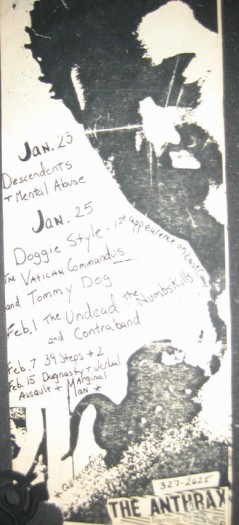 Jan. 23
Descendents
+ Mental Abuse
Jan. 25
Doggie Style - 1st appearance on
The Vatican Commandos
and Tommy Dog
Feb. 1 The Undead the NumbSkulls
and Contraband
Feb. 7 39 Steps + 2
Feb. 15 Dagnasty + Verbal
Assault + Marginal
Man +
327-2625
THE ANTHRAX